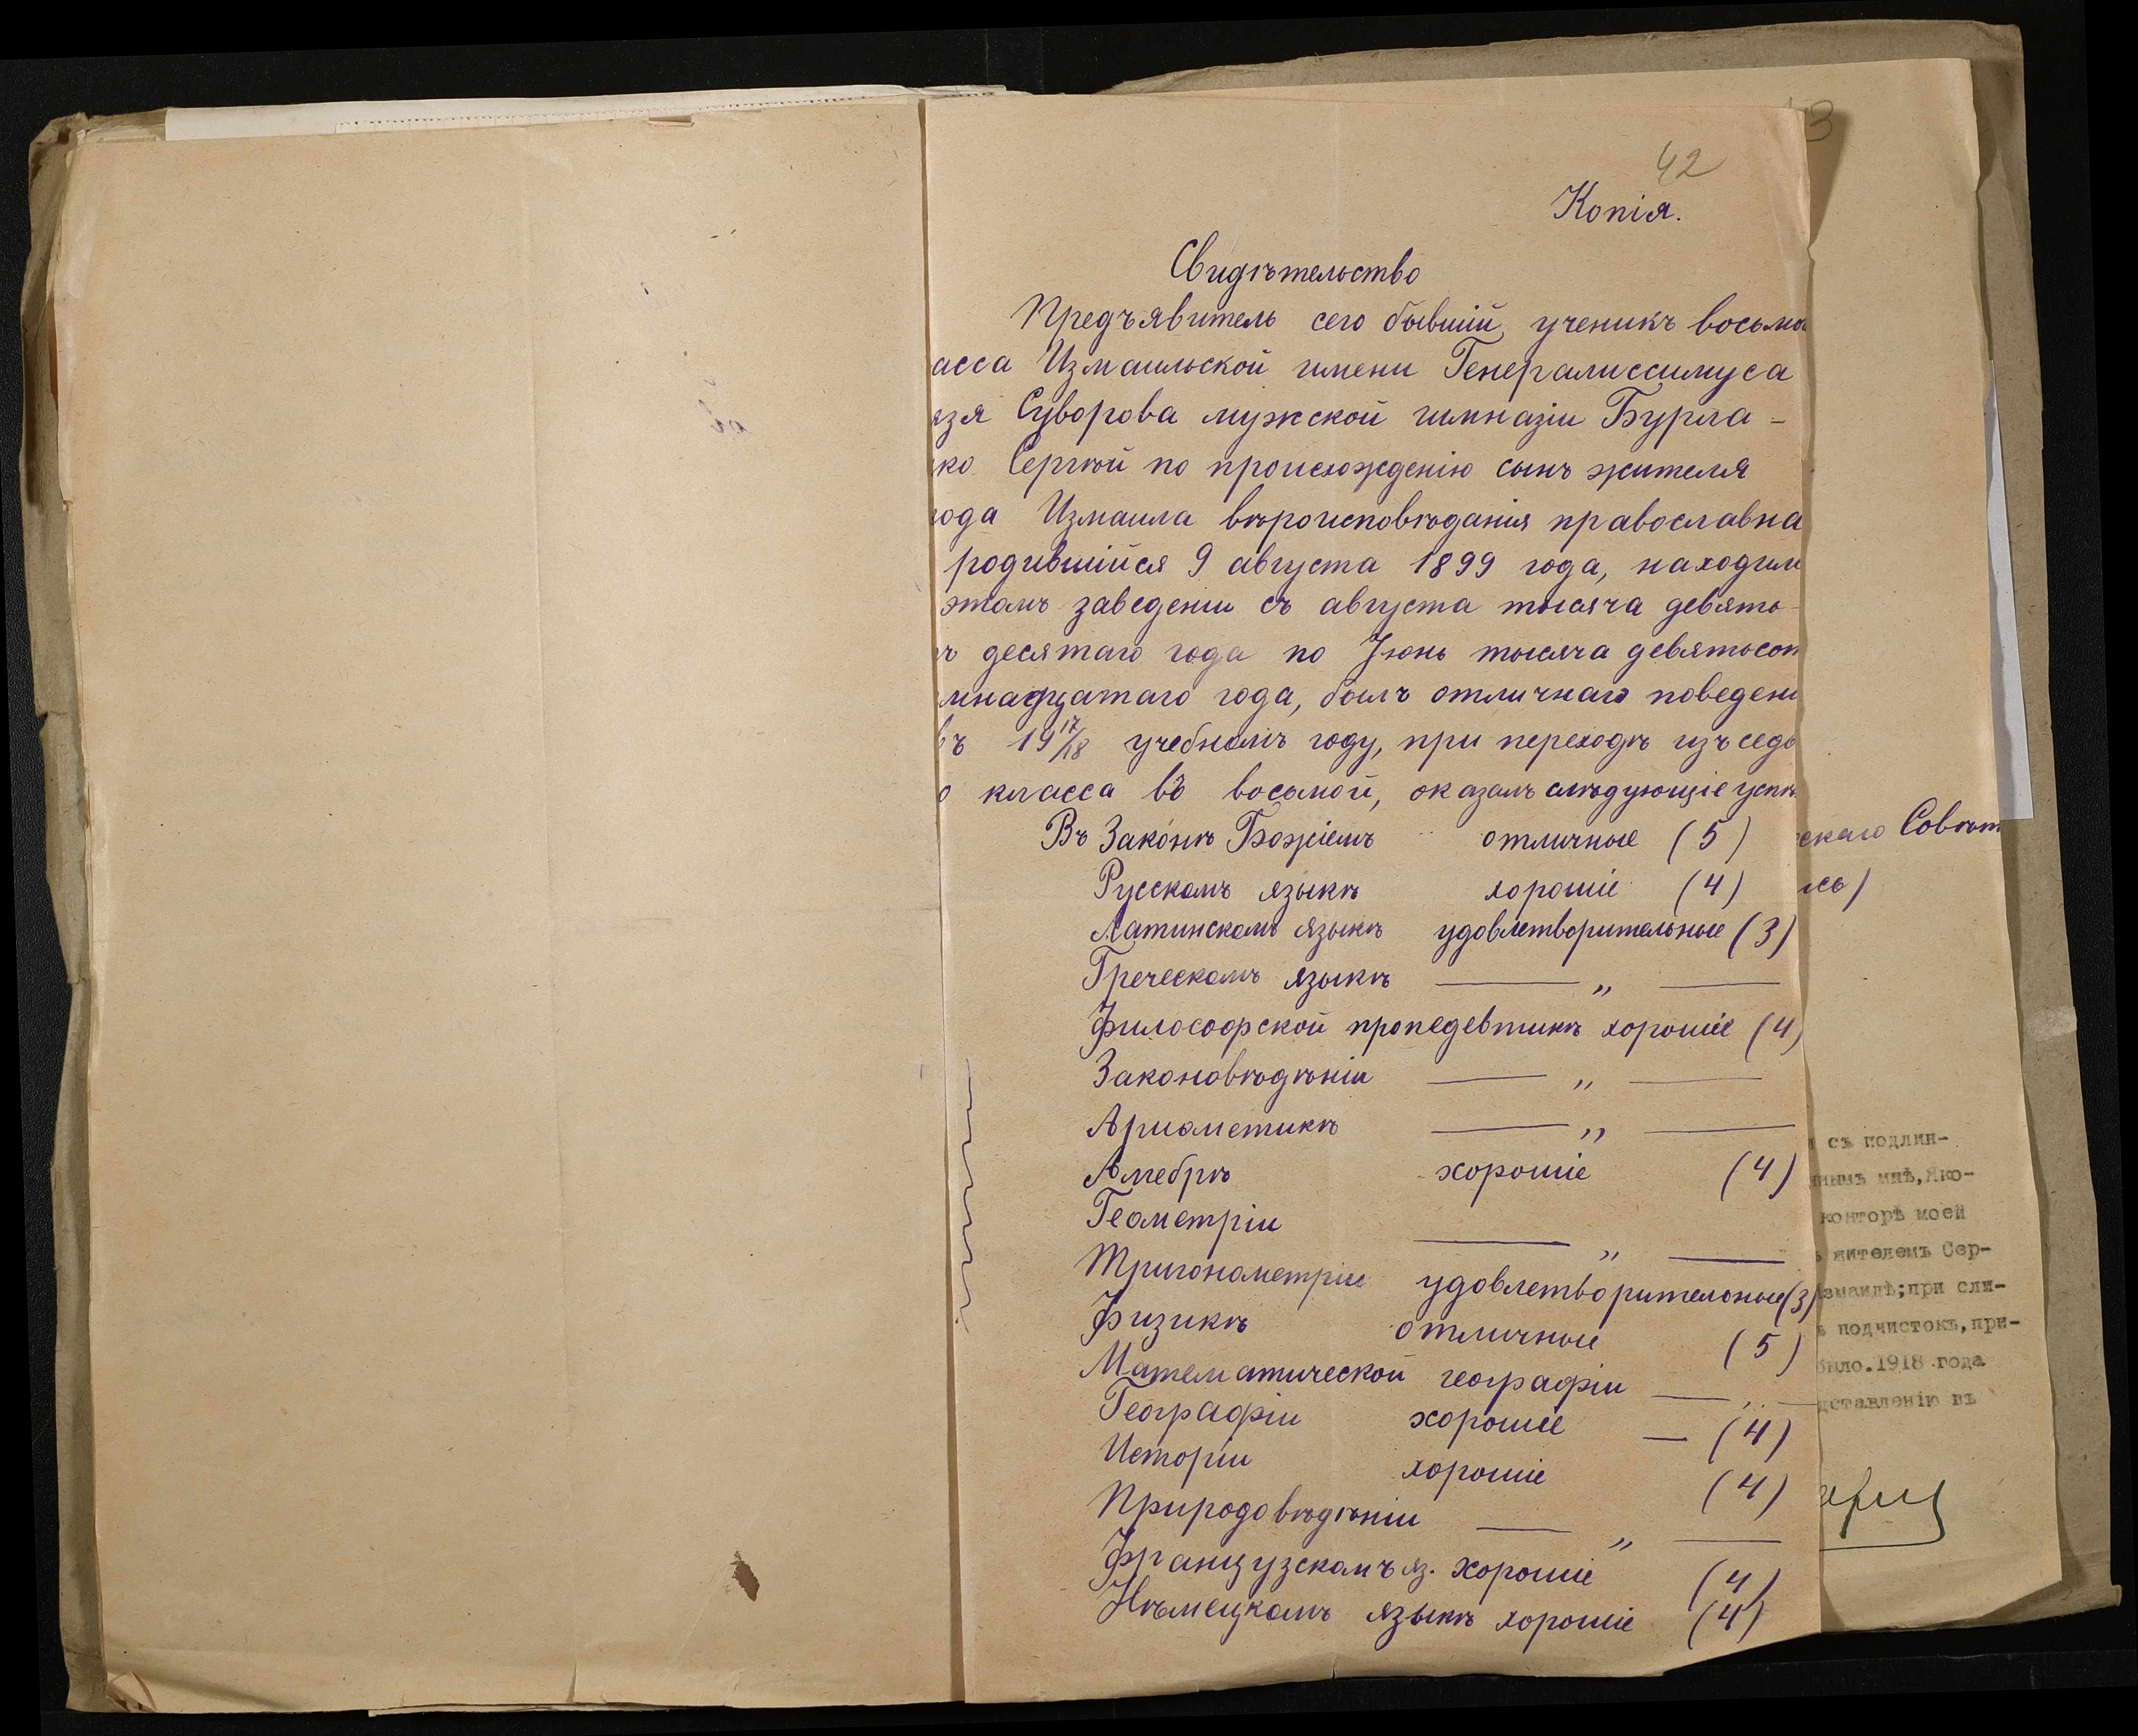 42
Копія.
Свидѣтельство
Предъявитель сего бывшій ученикъ восьмо
асса Измаильской имени Генералиссимуса
язя Суворова мужской гимназіи Бурла-
ко Сергѣй по происхожденію сынъ жителя
ода Измаила вѣроисповѣданія православна
родившійся 9 августа 1899 года, находил
этомъ заведеніи съ августа тысяча девять-
ъ десятаго года по Іюнь тысяча девятьсот
мнадцатаго года, былъ отличнаго поведені
въ 19 17/18 учебномъ году, при переходѣ изъ седь
о класса въ восьмой, оказалъ слѣдующіе успѣ
Въ Законѣ Божіемъ отличные (5)
Русскомъ языкѣ хорошіе (4)
Латинскомъ языкѣ удовлетворительные (3)
Греческомъ языкѣ — „ —
Философской пропедевтикѣ хорошіе (4)
Законовѣдѣніи — „ —
Ариѳметикѣ — „ —
Алгебрѣ хорошіе (4)
Геометріи — „ —
Тригонометріи удовлетворительные (3)
Физикѣ отличные (5)
Математической географіи — „ —
Географіи хорошіе — (4)
Исторіи хорошіе (4)
Природовѣдѣніи — „ —
Французскомъ яз. хорошіе (4)
Нѣмецкомъ языкѣ хорошіе (4)
3
скаго Совѣт
сь)
съ подлин-
ннымъ мнѣ, Яко-
конторѣ моей
жителемъ Сер-
Измаилѣ; при сли-
подчистокъ, при-
было. 1918 года
дставленію въ